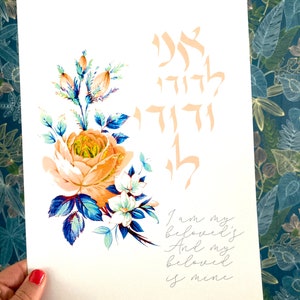 אני
לדודי
ודודי
לי
I am my
beloved's
And my
beloved
is mine